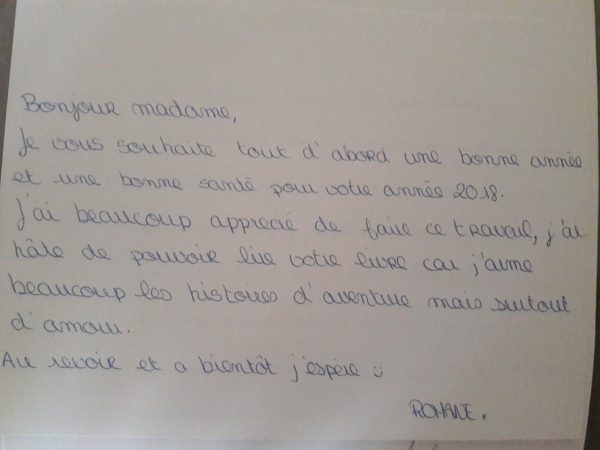 Bonjour madame,
Je vous souhaite tout d'abord une bonne année
et une bonne santé pour votre année 2018.
J'ai beaucoup apprecié de faire ce travail, j'ai
hâte de pouvoir lire votre livre car j'aime
beaucoup les histoires d'aventure mais surtout
d'amour.
Au revoir et a bientôt j'espère ü
ROMANE.